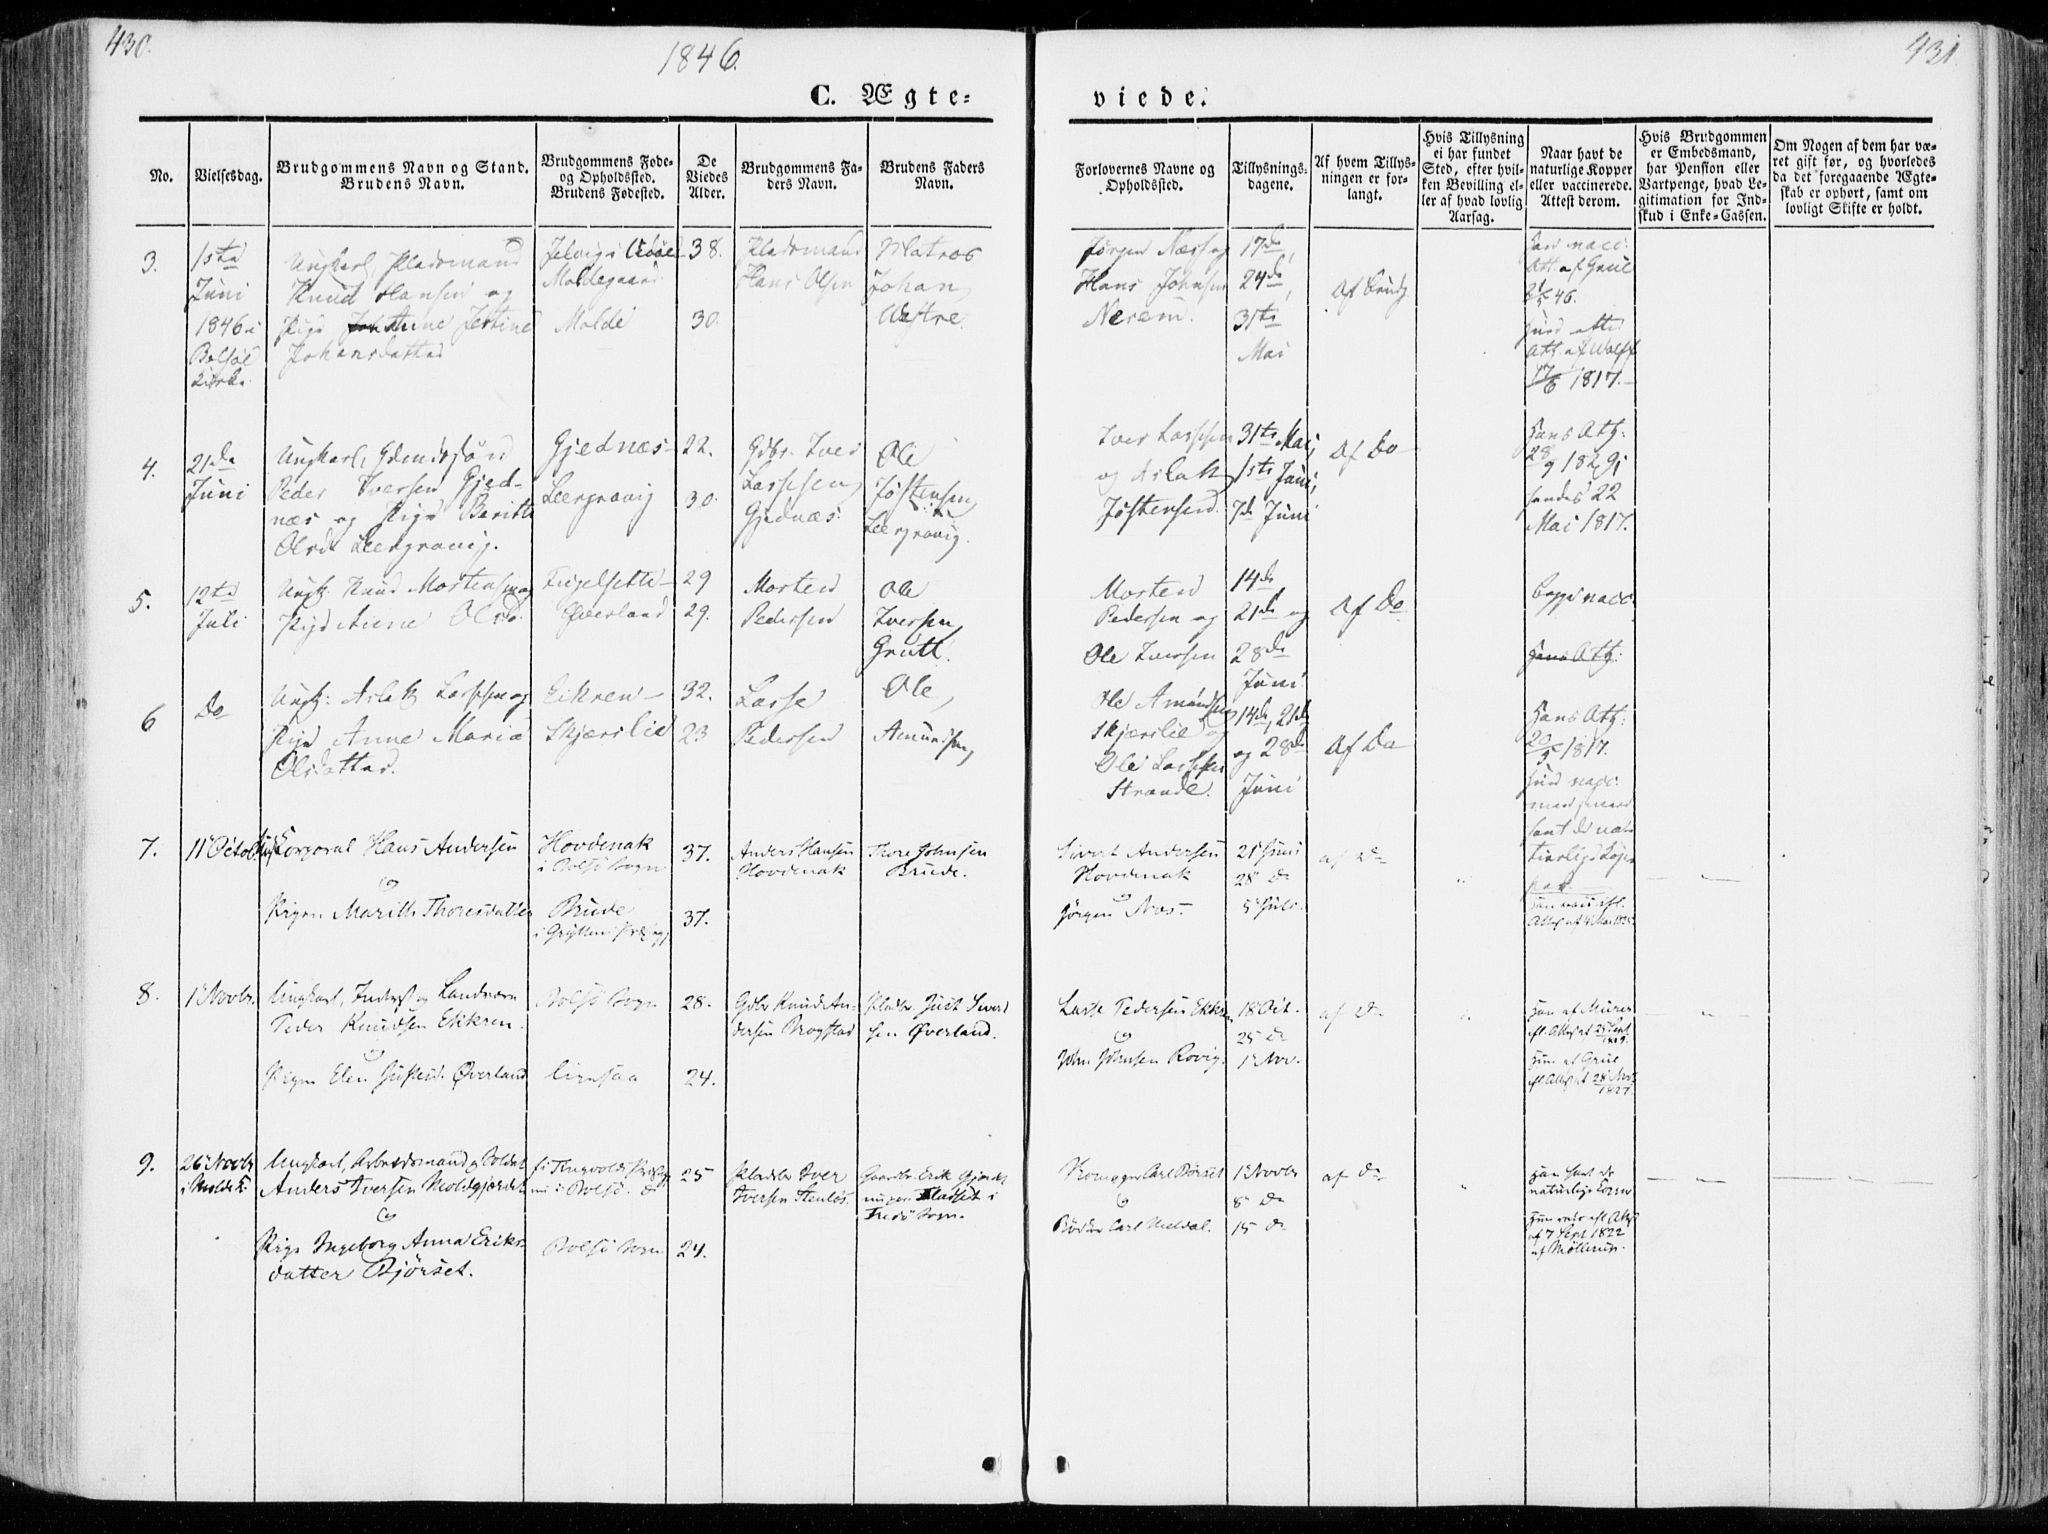 430.
1846.
431
C. Ægte-
viede.
No.
Vielsesdag.
Brudgommens Navn og Stand.
Brudens Navn.
Brudgommens Føde-
og Opholdssted.
Brudens Fødested.
De
Viedes
Alder.
Brudgommens Fa-
ders Navn.
Brudens Faders
Navn.
Forlovernes Navne og
Opholdssted.
Tillysnings-
dagene.
Af hvem Tillys-
ningen er for-
langt.
Hvis Tillysning
ei har fundet
Sted, efter hvil-
ken Bevilling el-
ler af hvad lovlig
Aarsag.
Naar havt de
naturlige Kopper
eller vaccinerede.
Attest derom.
Hvis Brudgommen
er Embedsmand,
har Pension eller
Vartpenge, hvad Le-
gitimation for Ind-
skud i Enke-Cassen.
Om Nogen af dem har væ-
ret gift før, og hvorledes
da det foregaaende Ægte-
skab er ophørt, samt om
lovligt Skifte er holdt.
3.
1ste
Juni
1846 i
Bolsøe
Kirke.
Ungkarl, Pladsmand
Knud Hansen og
Pige Anne Jestine
Johansdatter
Moldegaard
Molde
38.
30.
Pladsmand
Hans Olsen
Matros
Johan
Westre.
Jørgen Næss og
Hans Johnsen
Nerem.
17de,
24de,
31te
Mai
Af Brudg.
Att. af Grüe
46.
Att. af Wolff
17/6 1817.
4.
21de
Juni
Ungkarl,
Peder Iversen Gjed-
næs og Pige Beritte
Olsd. Leergravig.
Gjednæs
Leergravig
22.
30.
Gdbr. Iver
Lassesen
Gjednæs.
Ole
Jøstensen
Leergravig.
Iver Lassesen
og Aslak
Jøstensen.
31te Mai,
1ste Juni,
7de Juni
Af Do
Hans Att:
28/9 1829;
hendes 22
Mai 1817.
5.
12te
Juli
Ungk: Knud Mortensen og
Pige Anne Olsd.
Fugelsette
Øverland
29
29.
Morten
Pedersen
Ole
Iversen
Morten
Pedersen og
Ole Iversen
14de
21de og
28de
Juni
Af Do
Begge vacc.
Hans Att:
6
Do
Ungk: Aslak Lassesen og
Pige Anne Maria
Olsdatter.
Eikren
Skjærslie
32.
23
Lasse
Pedersen
Ole
Amundsen
Ole Amundsen
Skjærslie og
Ole Lassesen
Strande.
14de, 21de
og 28de
Juni
Af Do
Hans Att:
20/5 1817.
Hun vacc.
7.
11 Octob
Corporal Hans Andersen
og
Pigen Marith Thoresdatter
Hovdenak
i Bolsø Sogn
Brude
i Gryttens Præstegj
37.
37.
Anders Hansen
Hovdenak
Thore Johnsen
Brude.
Sivert Andersen
Hovdenak
og
Jørgen Næs.
21 Juni
28 do
5 Juli.
af Do
8.
1 Novbr.
Ungkarl, Inderst og Landværn
Peder Knudsen Eikren.
og
Pigen Elen Justsd. Øverland
Bolsø Sogn
28.
24.
Gdbr Knud An-
dersen Brogstad
Pladsbr. Just Siverd
sen Øverland.
Lasse Pedersen Eikren
og
John Johnsen Røvig.
18 Oct.
25 do
1 Nov.
af Do
Hun af Grue
9.
26 Novbr
i Molde K.
Ungkarl, Arbeidsmand og Soldat
Anders Iversen Moldegjerdet
og
Pige Ingeborg Anna Eriks-
datter Bjørset.
Bolsø Sogn
25
24.
Pladsbr Iver
Iversen Stenløs
Gaardbr. Erik
Fredø Sogn.
Carl Børset
og
Bødker Carl Meldal.
1 Novbr
8 do
15 do
af Do
Han havt de
naturlige Kopper
Hun vacc efl. Attest
af 7 Sept 1822
af Møllerup.